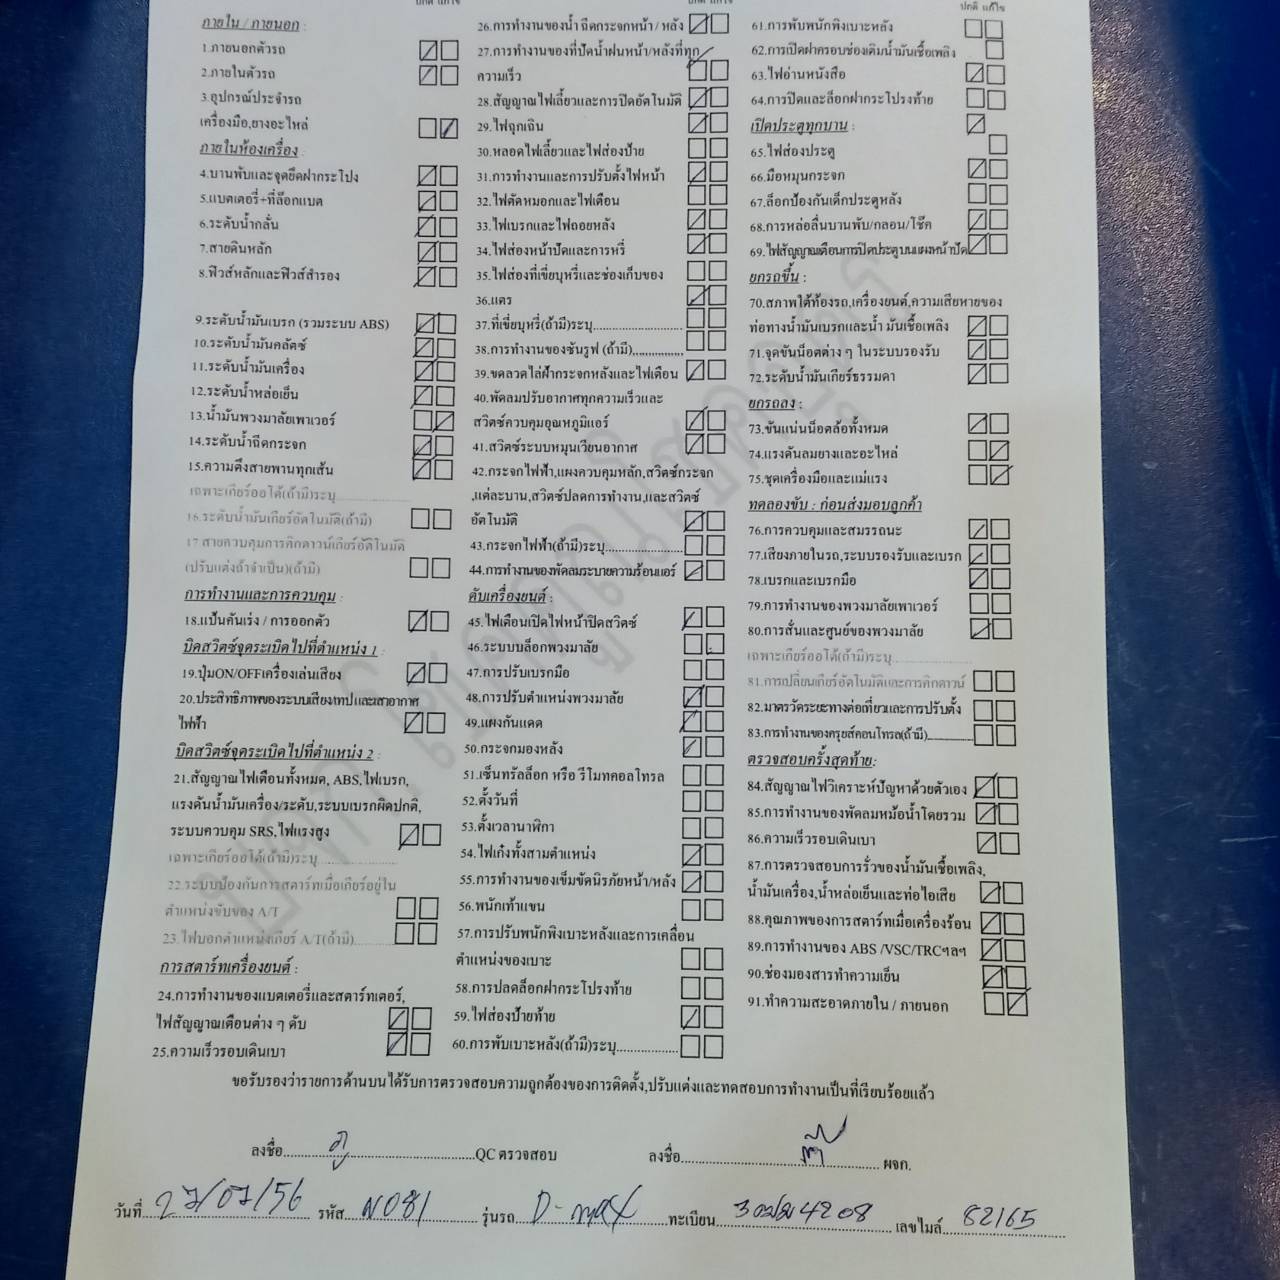 ปกติ แก้ไข
ภายใน / ภายนอก :
1.ภายนอกตัวรถ
2.ภายในตัวรถ
3.อุปกรณ์ประจำรถ
เครื่องมือ,ยางอะไหล่
ภายในห้องเครื่อง :
4.บานพับและจุดยึดฝากระโปง
5.แบตเตอรี่+ที่ล็อกแบต
6.ระดับน้ำกลั่น
7.สายดินหลัก
8.ฟิวส์หลักและฟิวส์สำรอง
9.ระดับน้ำมันเบรก (รวมระบบ ABS)
10.ระดับน้ำมันคลัตซ์
11.ระดับน้ำมันเครื่อง
12.ระดับน้ำหล่อเย็น
13.น้ำมันพวงมาลัยเพาเวอร์
14.ระดับน้ำฉีดกระจก
15.ความตึงสายพานทุกเส้น
เฉพาะเกียร์ออโต้(ถ้ามี)ระบุ
16.ระดับน้ำมันเกียร์อัตโนมัติ(ถ้ามี)
17.สายควบคุมการคิกดาวน์เกียร์อัตโนมัติ
(ปรับแต่งถ้าจำเป็น)(ถ้ามี)
การทำงานและการควบคุม :
18.แป้นคันเร่ง / การออกตัว
บิดสวิตซ์จุดระเบิดไปที่ตำแหน่ง 1 :
19.ปุ่มON/OFFเครื่องเล่นเสียง
20.ประสิทธิภาพของระบบเสียงเทปและเสาอากาศ
ไฟฟ้า
บิดสวิตซ์จุดระเบิดไปที่ตำแหน่ง 2 :
21.สัญญาณไฟเตือนทั้งหมด, ABS,ไฟเบรก,
แรงดันน้ำมันเครื่อง/ระดับ,ระบบเบรกผิดปกติ,
ระบบควบคุม SRS,ไฟแรงสูง
เฉพาะเกียร์ออโต้(ถ้ามี)ระบุ
22.ระบบป้องกันการสตาร์ทเมื่อเกียร์อยู่ใน
ตำแหน่งขับของ A/T
23.ไฟบอกตำแหน่งเกียร์ A/T(ถ้ามี)
การสตาร์ทเครื่องยนต์ :
24.การทำงานของแบตเตอรี่และสตาร์ทเตอร์,
ไฟสัญญาณเตือนต่าง ๆ ดับ
25.ความเร็วรอบเดินเบา
26.การทำงานของน้ำ ฉีดกระจกหน้า / หลัง
27.การทำงานของที่ปัดน้ำฝนหน้า/หลังที่ทุก
ความเร็ว
28.สัญญาณไฟเลี้ยวและการปิดอัตโนมัติ
29.ไฟฉุกเฉิน
30.หลอดไฟเลี้ยวและไฟส่องป้าย
31.การทำงานและการปรับตั้งไฟหน้า
32.ไฟตัดหมอกและไฟเตือน
33.ไฟเบรกและไฟถอยหลัง
34.ไฟส่องหน้าปัดและการหรี่
35.ไฟส่องที่เขี่ยบุหรี่และช่องเก็บของ
36.แตร
37.ที่เขี่ยบุหรี่(ถ้ามี)ระบุ
38.การทำงานของซันรูฟ (ถ้ามี)
39.ขดลวดไล่ฝ้ากระจกหลังและไฟเตือน
40.พัดลมปรับอากาศทุกความเร็วและ
สวิตซ์ควบคุมอุณหภูมิแอร์
41.สวิตซ์ระบบหมุนเวียนอากาศ
42.กระจกไฟฟ้า,แผงควบคุมหลัก,สวิตซ์กระจก
,แต่ละบาน,สวิตซ์ปลดการทำงาน,และสวิตซ์
อัตโนมัติ
43.กระจกไฟฟ้า(ถ้ามี)ระบุ
44.การทำงานของพัดลมระบายความร้อนแอร์
ดับเครื่องยนต์ :
45.ไฟเตือนเปิดไฟหน้าปิดสวิตซ์
46.ระบบบล็อกพวงมาลัย
47.การปรับเบรกมือ
48.การปรับตำแหน่งพวงมาลัย
49.แผงกันแดด
50.กระจกมองหลัง
51.เซ็นทรัลล็อก หรือ รีโมทคอลโทรล
52.ตั้งวันที่
53.ตั้งเวลานาฬิกา
54.ไฟเก๋งทั้งสามตำแหน่ง
55.การทำงานของเข็มขัดนิรภัยหน้า/หลัง
56.พนักเท้าแขน
57.การปรับพนักพิงเบาะหลังและการเคลื่อน
ตำแหน่งของเบาะ
58.การปลดล็อกฝากระโปรงท้าย
59.ไฟส่องป้ายท้าย
60.การพับเบาะหลัง(ถ้ามี)ระบุ
ปกติ แก้ไข
61.การพับพนักพิงเบาะหลัง
62.การเปิดฝาครอบช่องเติมน้ำมันเชื้อเพลิง
63.ไฟอ่านหนังสือ
64.การปิดและล็อกฝากระโปรงท้าย
เปิดประตูทุกบาน :
65.ไฟส่องประตู
66.มือหมุนกระจก
67.ล็อกป้องกันเด็กประตูหลัง
68.การหล่อลื่นบานพับ/กลอน/โช๊ค
69.ไฟสัญญาณเตือนการปิดประตูบนแผงหน้าปัด
ยกรถขึ้น :
70.สภาพใต้ท้องรถ,เครื่องยนต์,ความเสียหายของ
ท่อทางน้ำมันเบรกและน้ำ มันเชื้อเพลิง
71.จุดขันน็อตต่าง ๆ ในระบบรองรับ
72.ระดับน้ำมันเกียร์ธรรมดา
ยกรถลง :
73.ขันแน่นน็อตล้อทั้งหมด
74.แรงดันลมยางและอะไหล่
75.ชุดเครื่องมือและแม่แรง
ทดลองขับ : ก่อนส่งมอบลูกค้า
76.การควบคุมและสมรรถนะ
77.เสียงภายในรถ,ระบบรองรับและเบรก
78.เบรกและเบรกมือ
79.การทำงานของพวงมาลัยเพาเวอร์
80.การสั่นและศูนย์ของพวงมาลัย
เฉพาะเกียร์ออโต้(ถ้ามี)ระบุ
81.การเปลี่ยนเกียร์อัตโนมัติและการคิกดาวน์
82.มาตรวัดระยะทางต่อเที่ยวและการปรับตั้ง
83.การทำงานของครุยส์คอนโทรล(ถ้ามี)
ตรวจสอบครั้งสุดท้าย:
84.สัญญาณไฟวิเคราะห์ปัญหาด้วยตัวเอง
85.การทำงานของพัดลมหม้อน้ำโดยรวม
86.ความเร็วรอบเดินเบา
87.การตรวจสอบการรั่วของน้ำมันเชื้อเพลิง,
น้ำมันเครื่อง,น้ำหล่อเย็นและท่อไอเสีย
88.คุณภาพของการสตาร์ทเมื่อเครื่องร้อน
89.การทำงานของ ABS /VSC/TRCฯลฯ
90.ช่องมองสารทำความเย็น
91.ทำความสะอาดภายใน / ภายนอก
ขอรับรองว่ารายการด้านบนได้รับการตรวจสอบความถูกต้องของการติดตั้ง,ปรับแต่งและทดสอบการทำงานเป็นที่เรียบร้อยแล้ว
ลงชื่อ QC ตรวจสอบ ลงชื่อ ผจก.
วันที่ 27/07/56 รหัส N081 รุ่นรถ D-max ทะเบียน 4208 เลขไมล์ 82165